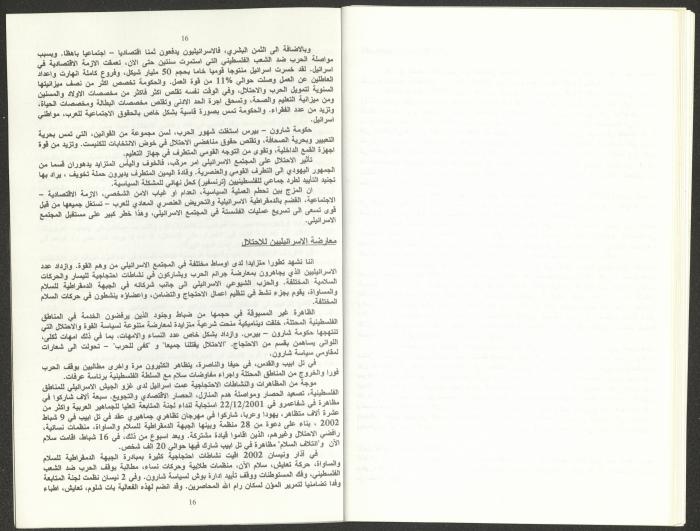 16
وبالاضافة الى الثمن البشري، فالاسرائيليون يدفعون ثمنا اقتصاديا – اجتماعيا باهظا. وبسبب
مواصلة الحرب ضد الشعب الفلسطيني التي استمرت سنتين حتى الان، تعمقت الازمة الاقتصادية في
اسرائيل. لقد خسرت اسرائيل منتوجا قوميا خاما بحجم 50 مليار شيكل، وفروع كاملة انهارت واعداد
العاطلين عن العمل وصلت حوالي 11% من قوة العمل. والحكومة تخصص اكثر من نصف ميزانيتها
السنوية لتمويل الحرب والاحتلال، وفي الوقت نفسه تقلص اكثر فأكثر من مخصصات الاولاد والمسنين
ومن ميزانية التعليم والصحة، وتسحق اجرة الحد الادنى وتقلص مخصصات البطالة ومخصصات الحياة،
وتزيد من عدد الفقراء. والحكومة تمس بصورة قاسية بشكل خاص بالحقوق الاجتماعية للعرب، مواطني
اسرائيل.
حكومة شارون – بيرس استغلت شهور الحرب، لسن مجموعة من القوانين، التي تمس بحرية
التعبير وبحرية الصحافة، وتقلص حقوق مناهضي الاحتلال في خوض الانتخابات للكنيست. وتزيد من قوة
اجهزة القمع الداخلية، وتقوى من التوجه القومي المتطرف في جهاز التعليم.
تأثير الاحتلال على المجتمع الاسرائيلي امر مركب، فالخوف واليأس المتزايد يدهوران قسما من
الجمهور اليهودي الى التطرف القومي والعنصرية. وقادة اليمين المتطرف يديرون حملة تخويف، يراد بها
تجنيد التأييد لطرد جماعي للفلسطينيين (ترنسفير) كحل نهائي للمشكلة السياسية.
ان المزج بين تحطم العملية السياسية، انعدام او غياب الامن الشخصي، الازمة الاقتصادية –
الاجتماعية، القضم بالدمقراطية الاسرائيلية والتحريض العنصري المعادي للعرب – تستغل جميعها من قبل
قوى تسعى الى تسريع عمليات الفاشستة في المجتمع الاسرائيلي، وهذا خطر كبير على مستقبل المجتمع
الاسرائيلي.
معارضة الاسرائيليين للاحتلال
اننا نشهد تطورا متزايدا لدى اوساط مختلفة في المجتمع الاسرائيلي من وهم القوة. وازداد عدد
الاسرائيليين الذي يجاهرون بمعارضة جرائم الحرب ويشاركون في نشاطات احتجاجية لليسار والحركات
السلامية المختلفة. والحزب الشيوعي الاسرائيلي الى جانب شركائه في الجبهة الدمقراطية للسلام
والمساواة، يقوم بجزء نشط في تنظيم اعمال الاحتجاج والتضامن، واعضاؤه ينشطون في حركات السلام
المختلفة.
الظاهرة غير المسبوقة في حجمها من ضباط وجنود الذين يرفضون الخدمة في المناطق
الفلسطينية المحتلة، خلقت ديناميكية منحت شرعية متزايدة لمعارضة متنوعة لسياسة القوة والاحتلال التي
تنتهجها حكومة شارون – بيرس. وازداد بشكل خاص عدد النساء والامهات، بما في ذلك امهات ثكلى،
اللواتي يساهمن بقسم من الاحتجاج. "الاحتلال يقتلنا جميعا" و "كفى للحرب" – تحولت الى شعارات
لمقاومي سياسة شارون.
في تل ابيب والقدس، في حيفا والناصرة، يتظاهر الكثيرون مرة واخرى مطالبين بوقف الحرب
فورا والخروج من المناطق المحتلة واجراء مفاوضات سلام مع السلطة الفلسطينية برئاسة عرفات.
موجة من المظاهرات والنشاطات الاحتجاجية عمت اسرائيل لدى غزو الجيش الاسرائيلي للمناطق
الفلسطينية، تصعيد الحصار ومواصلة هدم المنازل، الحصار الاقتصادي والتجويع. سبعة آلاف شاركوا في
مظاهرة في شفاعمرو في 22/12/2001 استجابة لنداء لجنة المتابعة العليا للجماهير العربية واكثر من
عشرة آلاف متظاهر، يهودا وعربا، شاركوا في مهرجان تظاهري جماهيري عقد في تل ابيب في 9 شباط
2002 ، بناء على دعوة من 28 منظمة وبينها الجبهة الدمقراطية للسلام والمساواة، منظمات نسائية،
رافضي الاحتلال وغيرهم، الذين اقاموا قيادة مشتركة. وبعد اسبوع من ذلك، في 16 شباط، اقامت سلام
الآن و"ائتلاف السلام" مظاهرة في تل ابيب شارك فيها حوالي 20 الف شخص.
في آذار ونيسان 2002 اقيت نشاطات احتجاجية كثيرة بمبادرة الجبهة الدمقراطية للسلام
والمساواة، حركة تعايش، سلام الآن، منظمات طلابية وحركات نساء، مطالبة بوقف الحرب ضد الشعب
الفلسطيني، وفك المستوطنات ووقف تأييد ادارة بوش لسياسة شارون. وفي 2 نيسان نظمت لجنة المتابعة
وفدا تضامنيا لتمرير المؤن لسكان رام الله المحاصرين. وقد انضم لهذه الفعالية بات شلوم، تعايش، اطباء
16